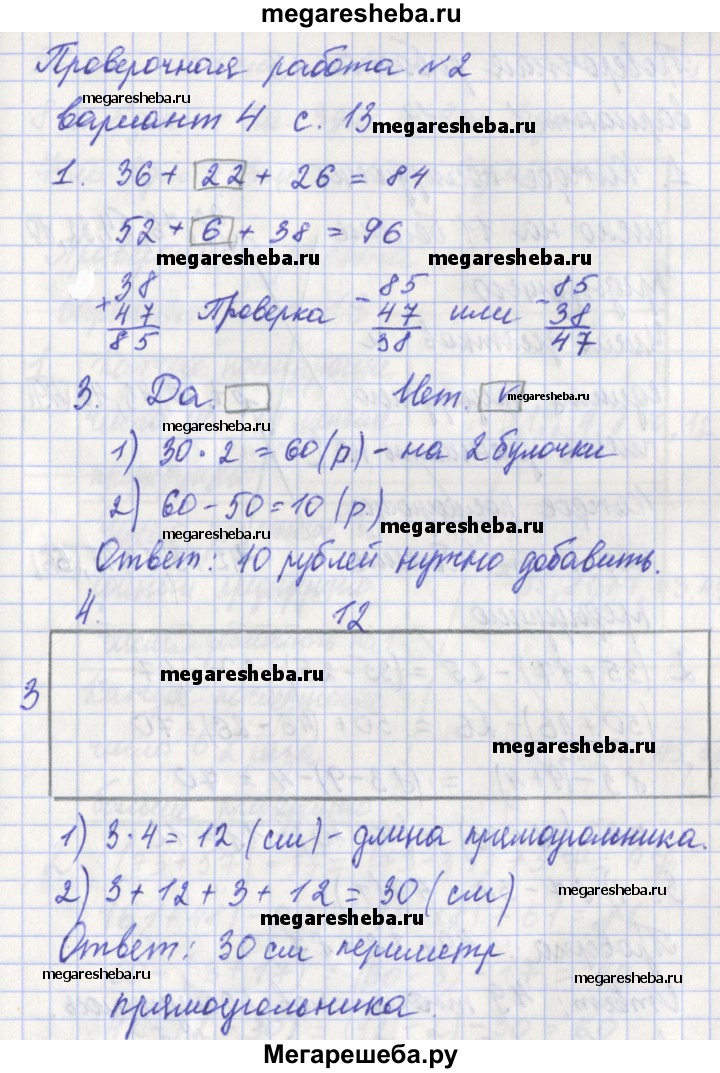 megaresheba.ru
Проверочная работа №2
megaresheba.ru
вариант 4 с. 13 megaresheba.ru
1. 36 + 22 + 26 = 84
52 + 6 + 38 = 96
megaresheba.ru megaresheba.ru
+38 -85 -85
47 Проверка 47 или 38
85 38 47
3. Да. Нет. megaresheba.ru
megaresheba.ru
1) 30 · 2 = 60 (р.) - на 2 булочки
2) 60 - 50 = 10 (р.)
megaresheba.ru megaresheba.ru
Ответ: 10 рублей нужно добавить.
4. 12
megaresheba.ru
3
megaresheba.ru
1) 3 · 4 = 12 (см) - длина прямоугольника.
2) 3 + 12 + 3 + 12 = 30 (см) megaresheba.ru
megaresheba.ru
Ответ: 30 см периметр
megaresheba.ru megaresheba.ru
прямоугольника.
Мегарешеба.ру